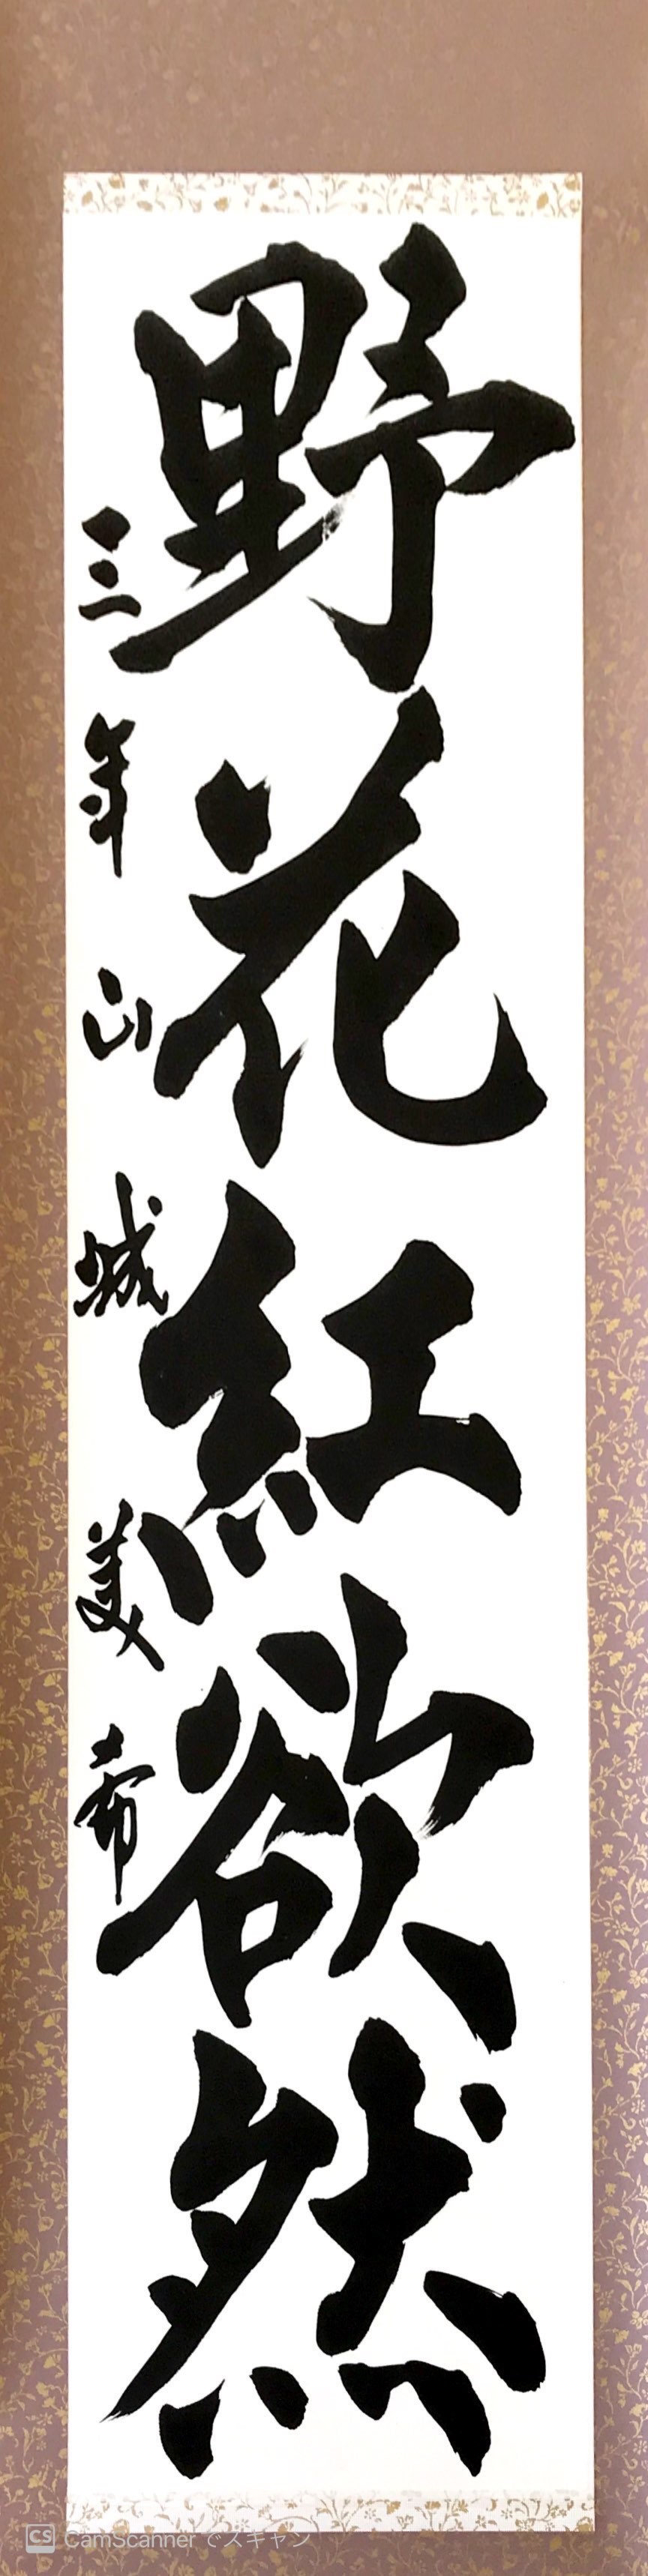 野花紅欲然
三年 山城美希
CS CamScanner でスキャン